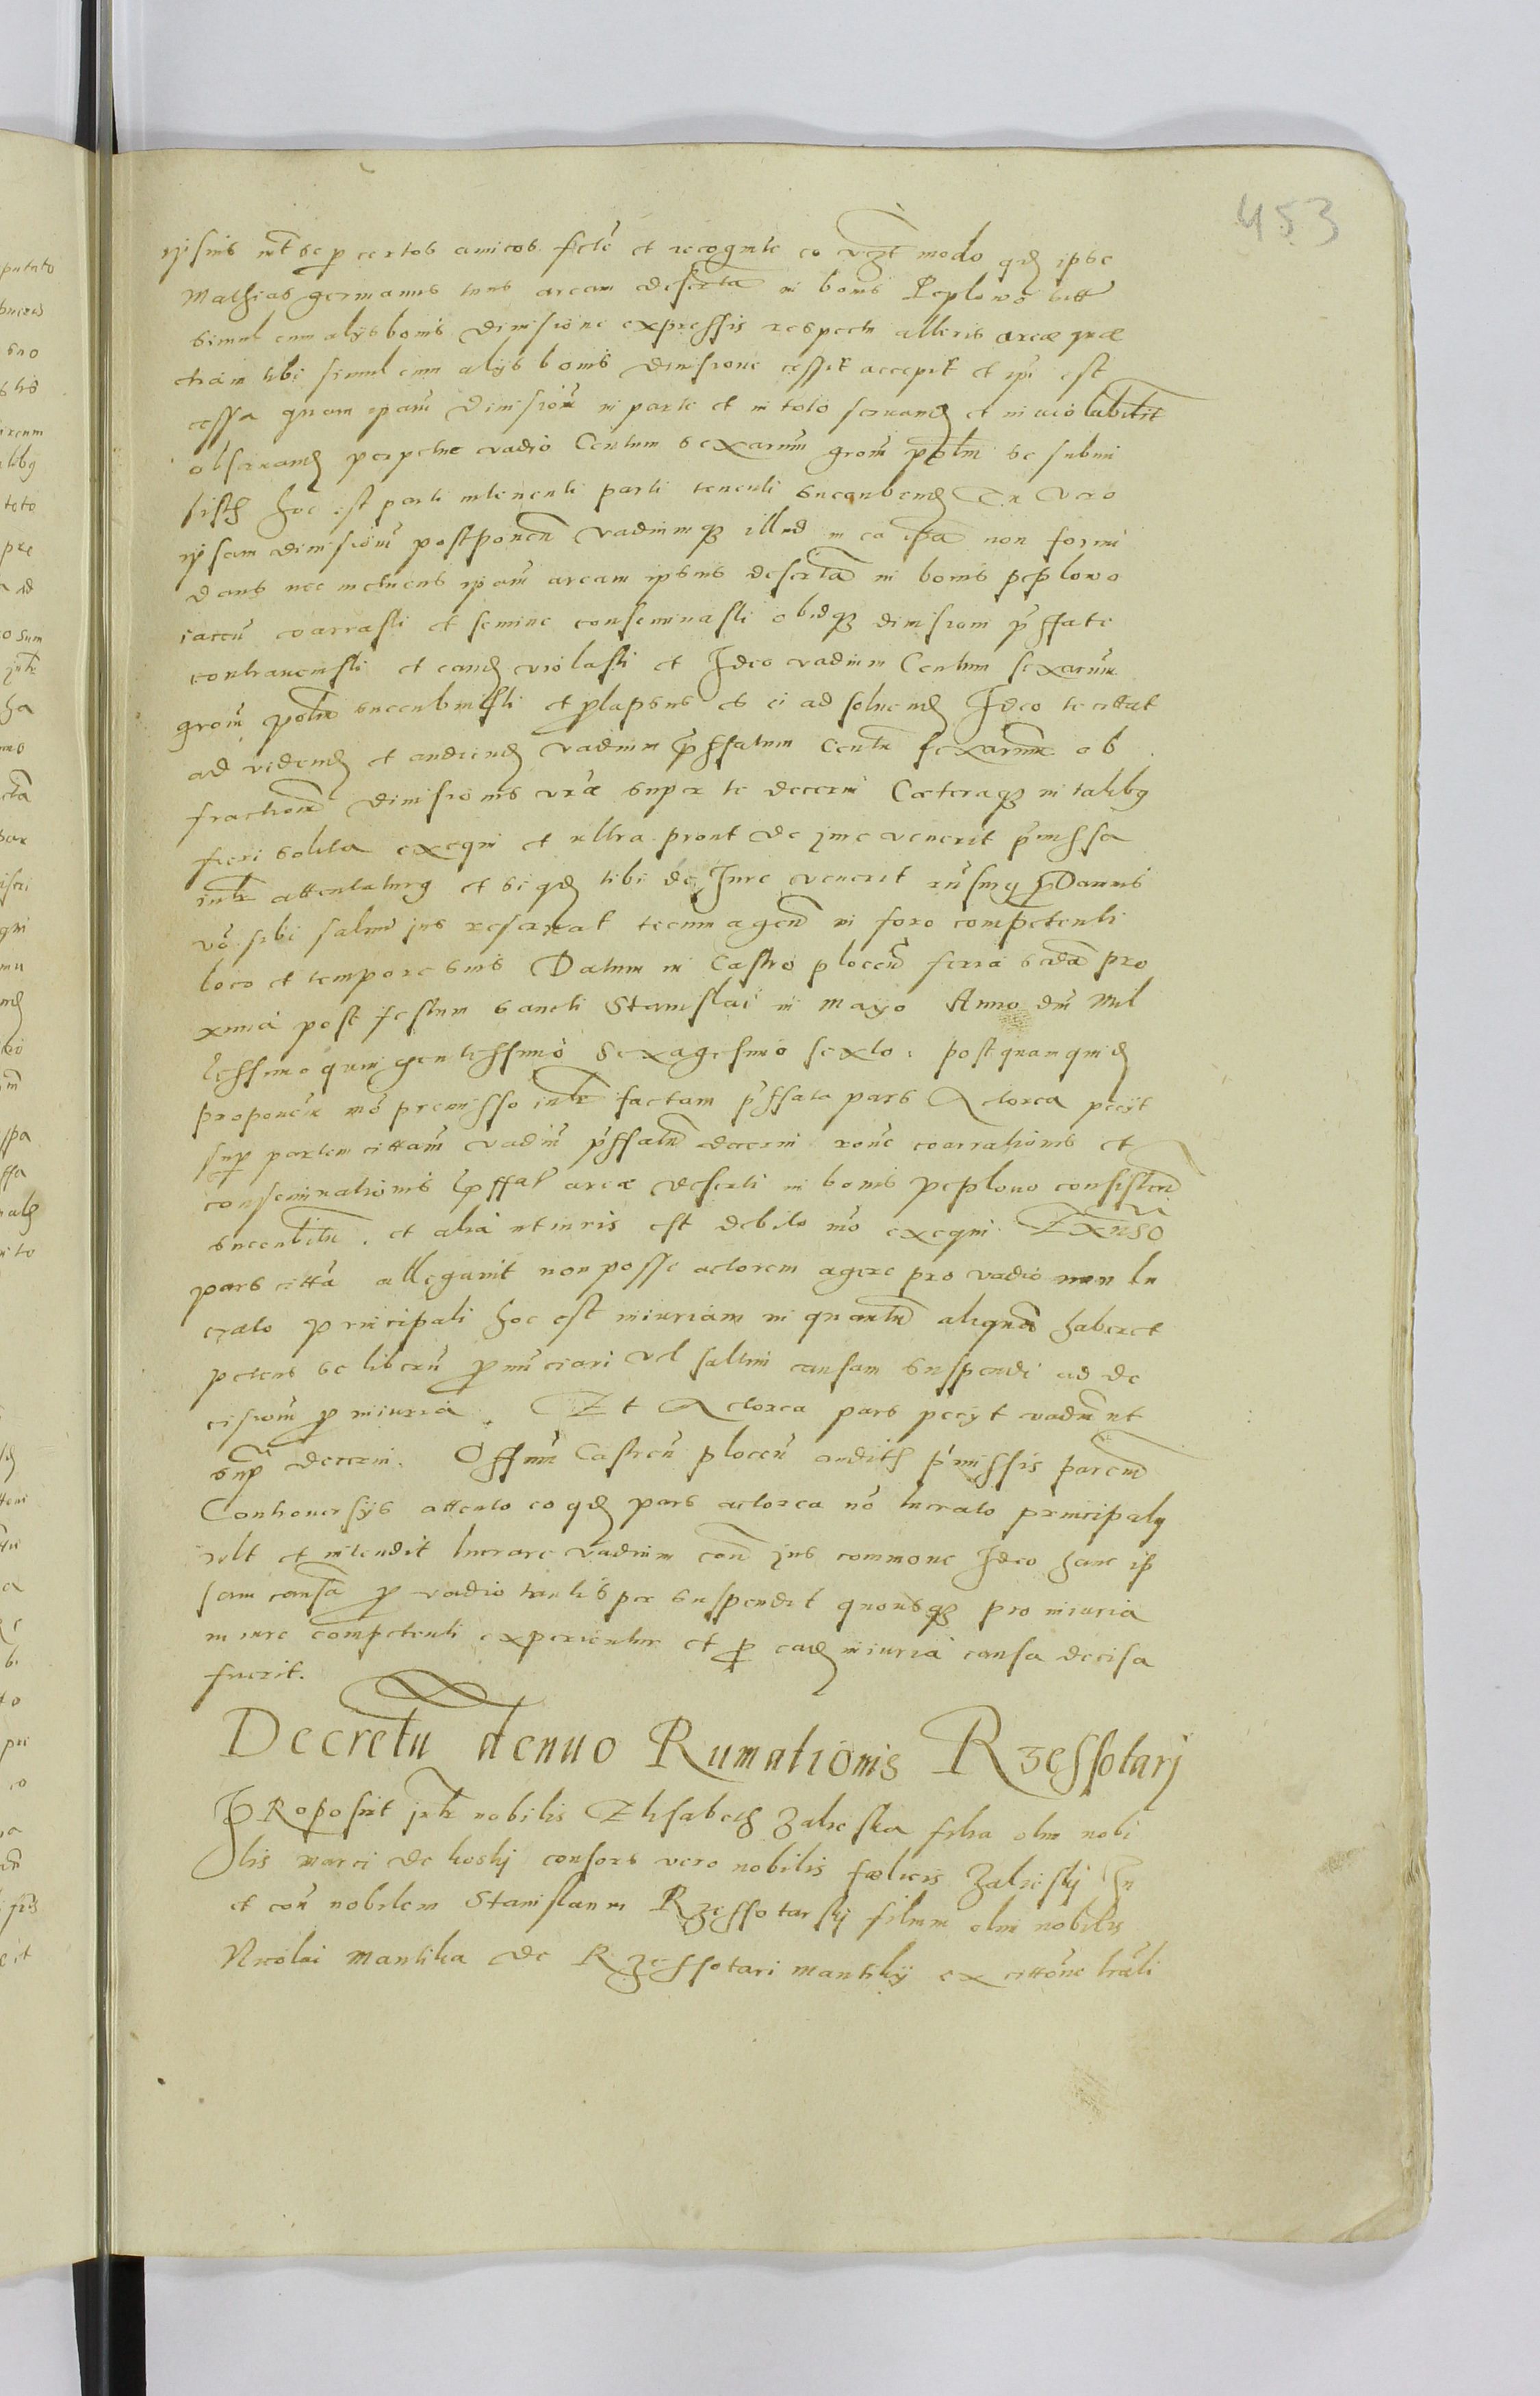 453
ipsius int se per certos amicos facte et recognite eo vzt modo qd ipse
Mathias germanus tuus aream desertam in bonis Peplowo
simul cum alys bonis divisione expressis respectu alterius areæ quæ
etiam tibi simul cum alys bonis divisione cessit accepit et ipi est
cessa quam ipam divisionem in parte et in toto servand et inviolabiliter
observand perpetue vadio Centum sexarum grom polm se submi
sisti hoc est parti intenenti parti tenenti succumbend Tu vero
ipsam divisionem postponen vadiumque illud in ea non formi
dans nec metuens ipam aream ipsius desertam in bonis peplowo
iacen coarrasti et semine conseminasti obidque divisioni pffate
contravenisti et eand violasti et Ideo vadium Centum sexarum
grom polm succubuisti et plapsus es ei ad solvend Ideo te cittat
ad vidend et audiend vadium pffatum Centum sexarum ob
fractionem divisionis vræ super te decerni Cæteraque in talibus
fieri solita exequi et ultra prout de jure venerit pmissa
intr attentaturus et si qd tibi de Jure evenerit rusurus Damnis
vo sibi salvum jus reservat tecum agen in foro competenti
loco et tempore suis Datum in Castro plocen feria scda pro
xima post festum sancti Stanislai in mayo Anno dni Mil
lessimo quingentessimo Sexagesimo sexto. postquam quid
proponem mo premisso intr factam pffata pars Actorea pecyt
sup partem cittam vadium pffatum decerni rone coarrationis et
conseminationis pffat areæ deserti in bonis peplowo consisten
succubitum. et alia ut iuris est debito mo exequi Ex adverso
pars citta allegavit non posse actorem agere pro vadio non lu
crato principali hoc est iniuriam in quantum aliquam haberet
petens se liberum pnunciari vel saltim causam suspendi ad de
cisionem p iniuria. Et Actorea pars pecyt vadium ut
sup decerni. Offium Castren plocen auditis pmissis parcium
Controversys attento eo qd pars actorea no lucrato principaly
vult et intendit lucrare vadium con jus commune Ideo hanc ip
sam causam p vadio tantisper suspendit quousque pro iniuria
in iure competenti experientur et p ead iniuria causa decisa
fuerit.
Decretu denuo Rumationis Rzessotarj
PRoposuit intr nobilis Elisabeth Zalieska filia olim nobi
lis marci de koskj consors vero nobilis fœlicis Zalieskj In
et con nobilem Stanislaum Rzessotarskj filium olim nobilis
Nicolai mantika de Rzessotari mantikij ex cittone